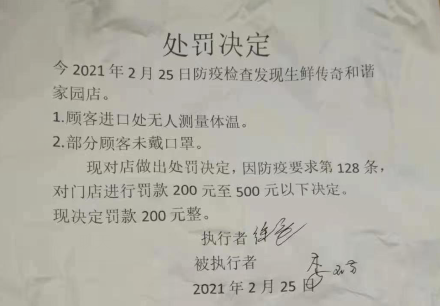 处罚决定
今 2021 年 2 月 25 日防疫检查发现生鲜传奇和谐
家园店。
1.顾客进口处无人测量体温。
2.部分顾客未戴口罩。
现对店做出处罚决定，因防疫要求第 128 条，
对门店进行罚款 200 元至 500 元以下决定。
现决定罚款 200 元整。
执行者
被执行者
2021 年 2 月 25 日